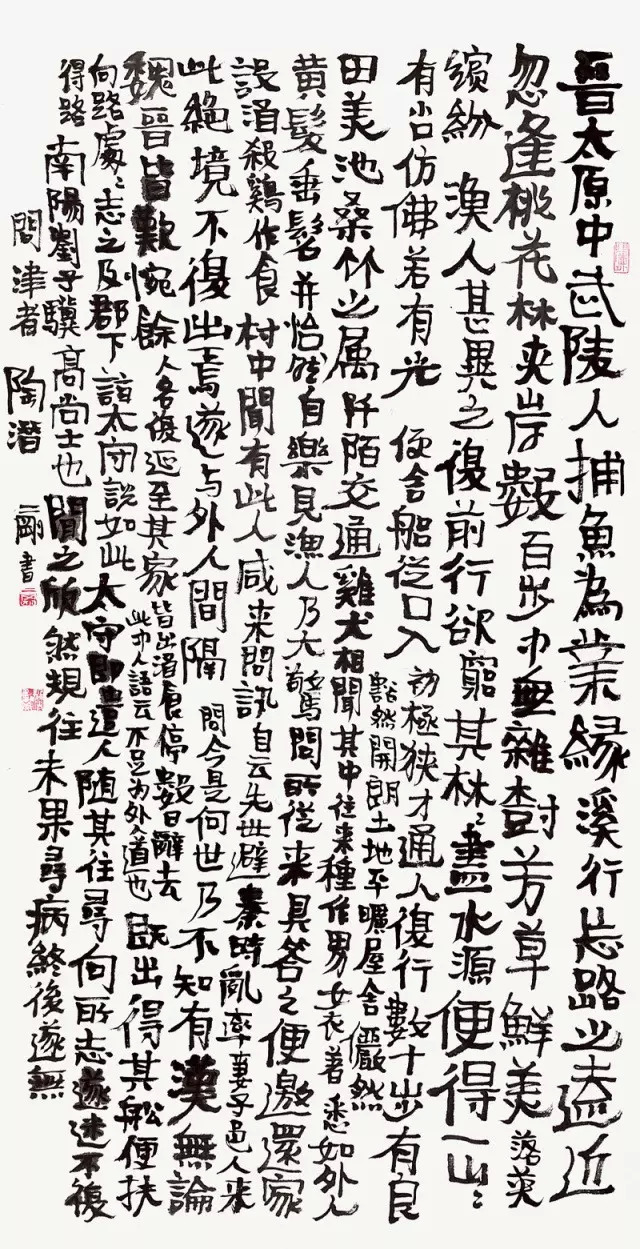 晉太原中武陵人捕魚為業緣溪行忘路之遠近
忽逢桃花林夾岸數百步中無雜樹芳草鮮美落英
繽紛漁人甚異之復前行欲窮其林〻盡水源便得一山〻
有小口仿佛若有光便舍船從口入初極狹才通人復行數十步豁然開朗土地平曠屋舍儼然有良
田美池桑竹之属阡陌交通雞犬相聞其中往来種作男女衣著悉如外人
黄髮垂髫并怡然自樂見漁人乃大驚問所從来具答之便邀還家
設酒殺鷄作食村中聞有此人咸来問訊自云先世避秦時亂率妻子邑人来
此絕境不復出焉遂与外人間隔問今是何世乃不知有漢無論
魏晉皆歎惋餘人各復延至其家皆出酒食停數日辭去此中人語云不足為外人道也既出得其船便扶
向路處〻志之及郡下詣太守說如此太守即遣人随其往尋向所志遂迷不復
得路南陽劉子驥高尚士也聞之欣然規往未果尋病終後遂無
問津者陶潛剛書